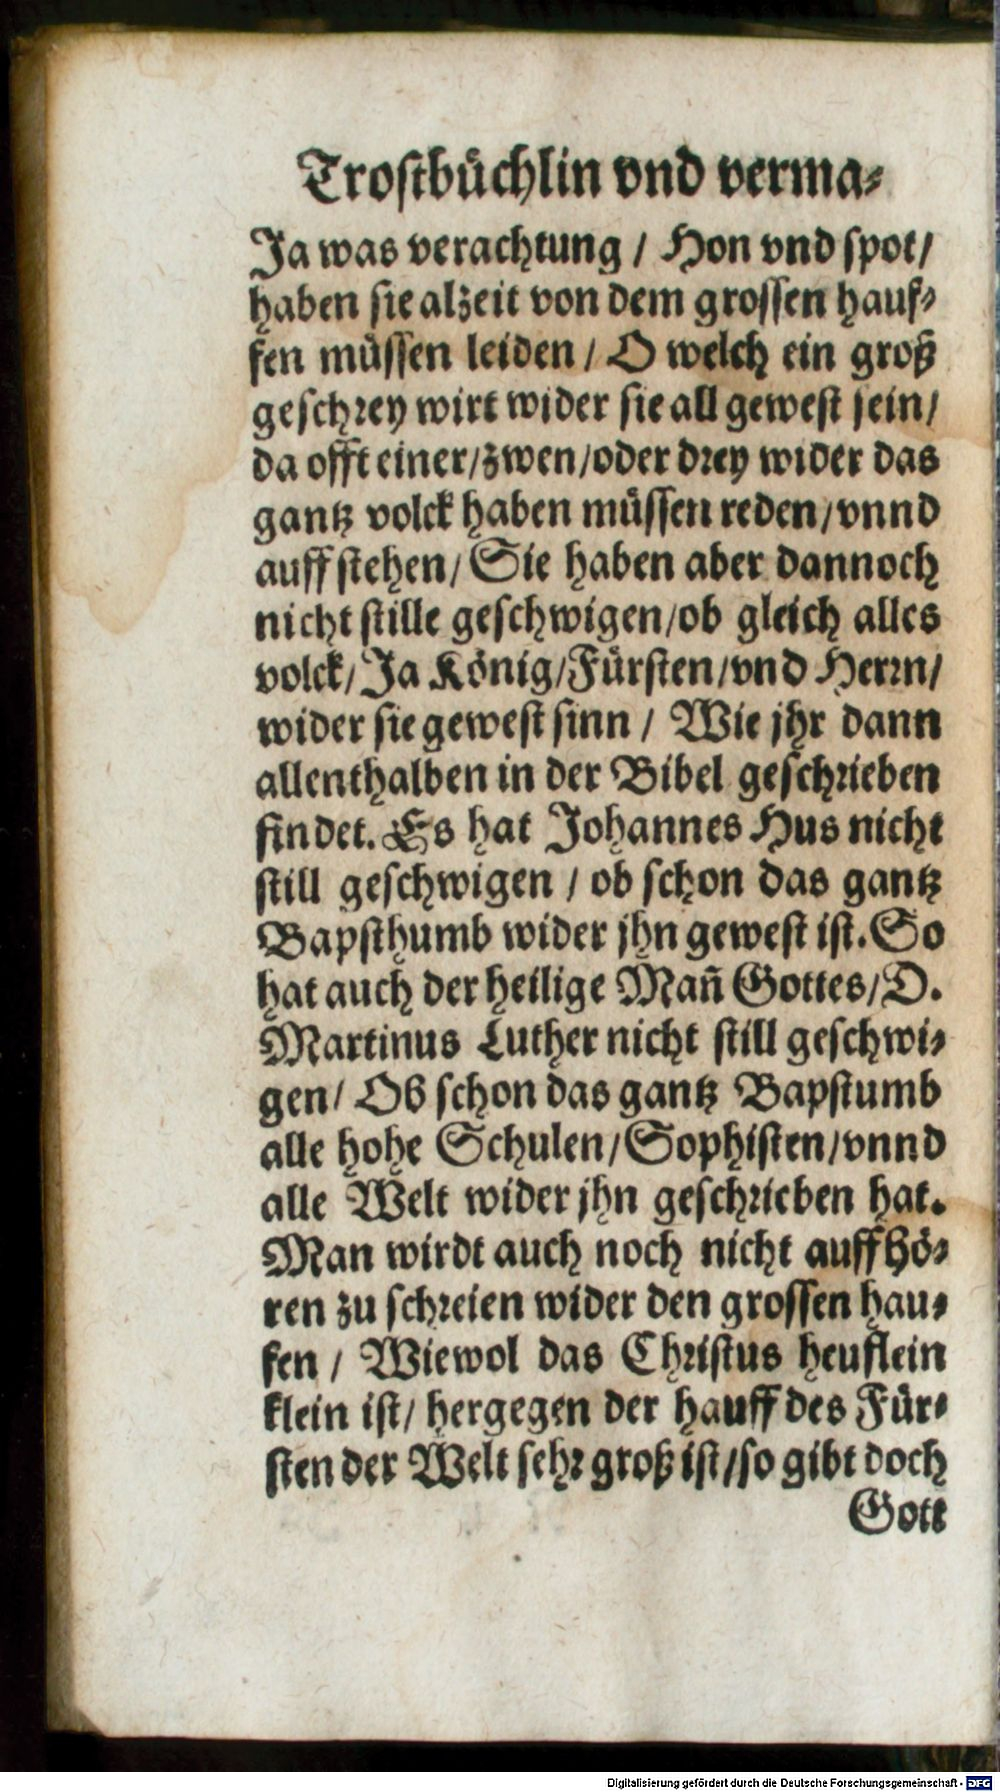 Trostbüchlin vnd verma⸗
Ja was verachtung / Hon vnd spot /
haben sie alzeit von dem grossen hauf⸗
fen müssen leiden / O welch ein groß
geschrey wirt wider sie all gewest sein /
da offt einer / zwen / oder drey wider das
gantz volck haben müssen reden / vnnd
auff stehen / Sie haben aber dannoch
nicht stille geschwigen / ob gleich alles
volck / Ja König / Fürsten / vnd Herrn /
wider sie gewest sinn / Wie jhr dann
allenthalben in der Bibel geschrieben
findet. Es hat Johannes Hus nicht
still geschwigen / ob schon das gantz
Bapsthumb wider jhn gewest ist. So
hat auch der heilige Mañ Gottes / D.
Martinus Luther nicht still geschwi⸗
gen / Ob schon das gantz Bapstumb
alle hohe Schulen / Sophisten / vnnd
alle Welt wider jhn geschrieben hat.
Man wirdt auch noch nicht auffhö⸗
ren zu schreien wider den grossen hau⸗
fen / Wiewol das Christus heuflein
klein ist / hergegen der hauff des Für⸗
sten der Welt sehr groß ist / so gibt doch
Gott
Digitalisierung gefördert durch die Deutsche Forschungsgemeinschaft - DFG